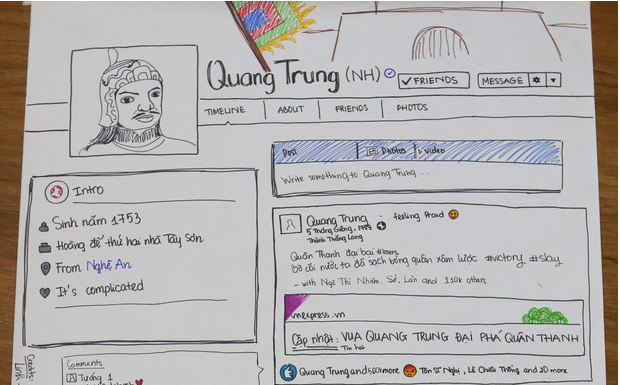 Quang Trung (NH)
FRIENDS
MESSAGE
TIMELINE
ABOUT
FRIENDS
PHOTOS
Intro
Sinh năm 1753
Hoàng đế thứ hai nhà Tây Sơn
From Nghệ An
It's complicated
Credits:
Comments
Tướng 1
Post
Photos
Video
Write something to Quang Trung ....
Quang Trung - feeling Proud
5 Tháng Giêng, 1789
Thành Thăng Long
Quân Thanh đại bại #losers
Bờ cõi nước ta đã sạch bóng quân xâm lược #victory #slay
- with Ngô Thì Nhậm, Sở, Lân and 110k others
vnexpress.vn
Cập nhật: VUA QUANG TRUNG ĐẠI PHÁ QUÂN THANH
Tin hot
Quang Trung and 500k more
Tôn Sĩ Nghị, Lê Chiêu Thống and 20 more